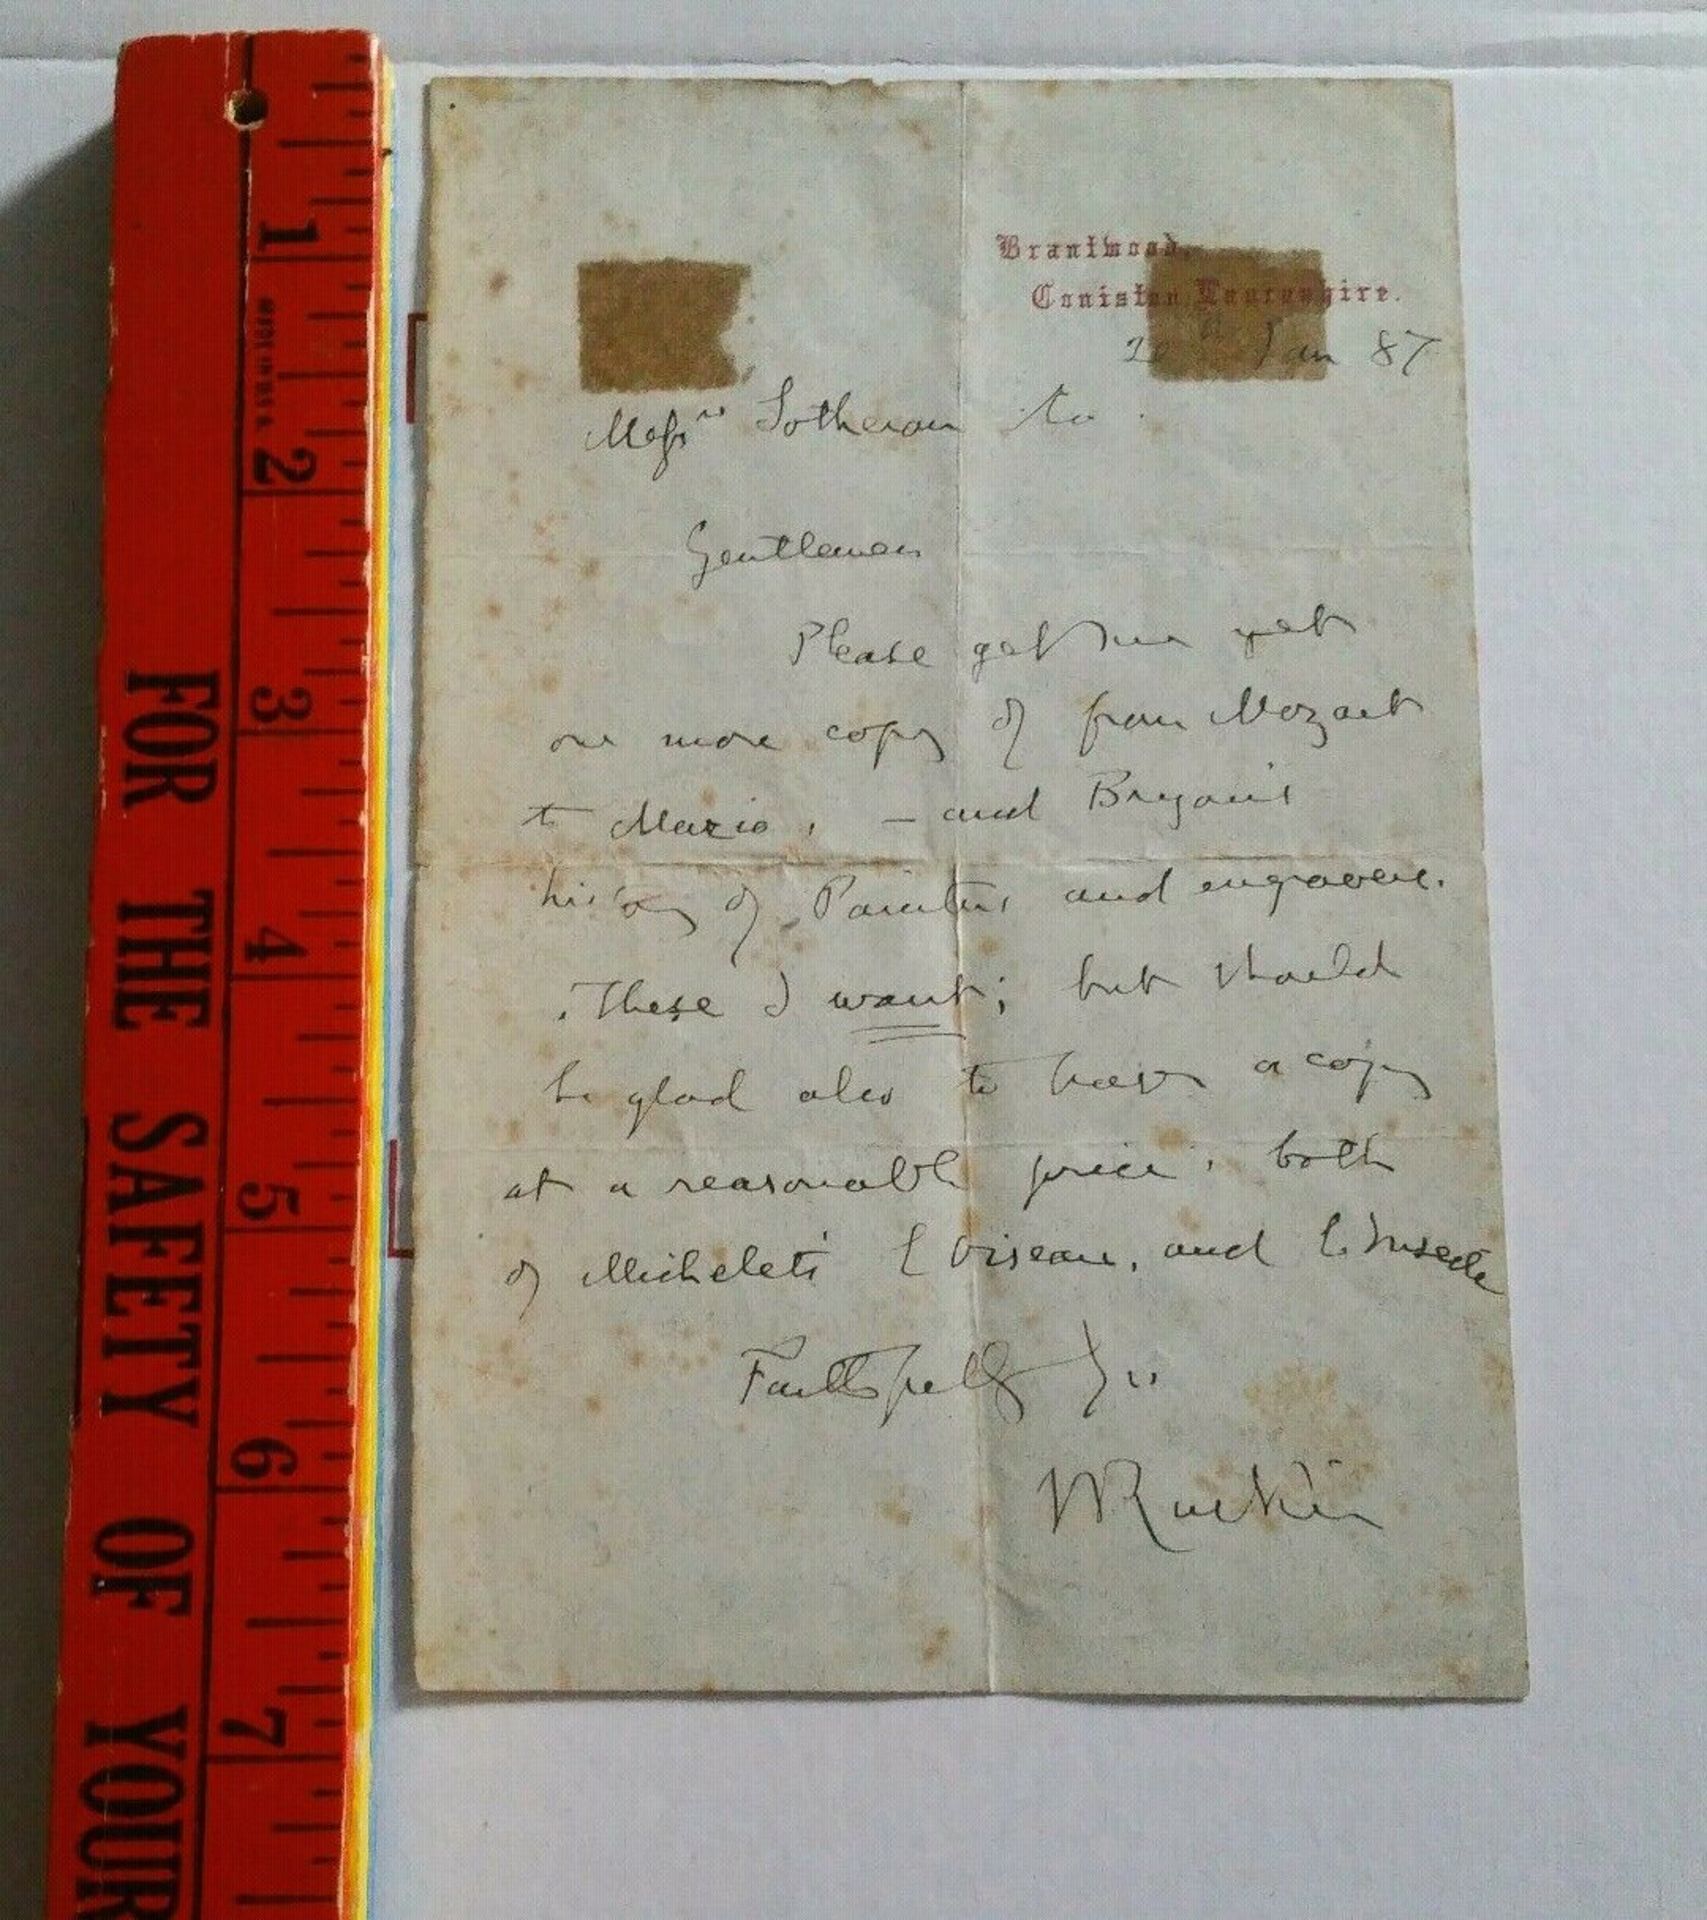 FOR THE SAFETY OF YOUR
1
2
3
4
5
6
7
Brantwood,
Coniston, Lancashire.
Jan 87
Messrs Sotheran & Co.
Gentlemen
Please get me yet
one more copy of from Mozart
to Mario, - and Bryan's
history of Painters and engravers.
These I want; but should
be glad also to have a copy
at a reasonable price, both
of Michelet's L'Oiseau, and L'Insecte
Faithfully Yrs
JRuskin